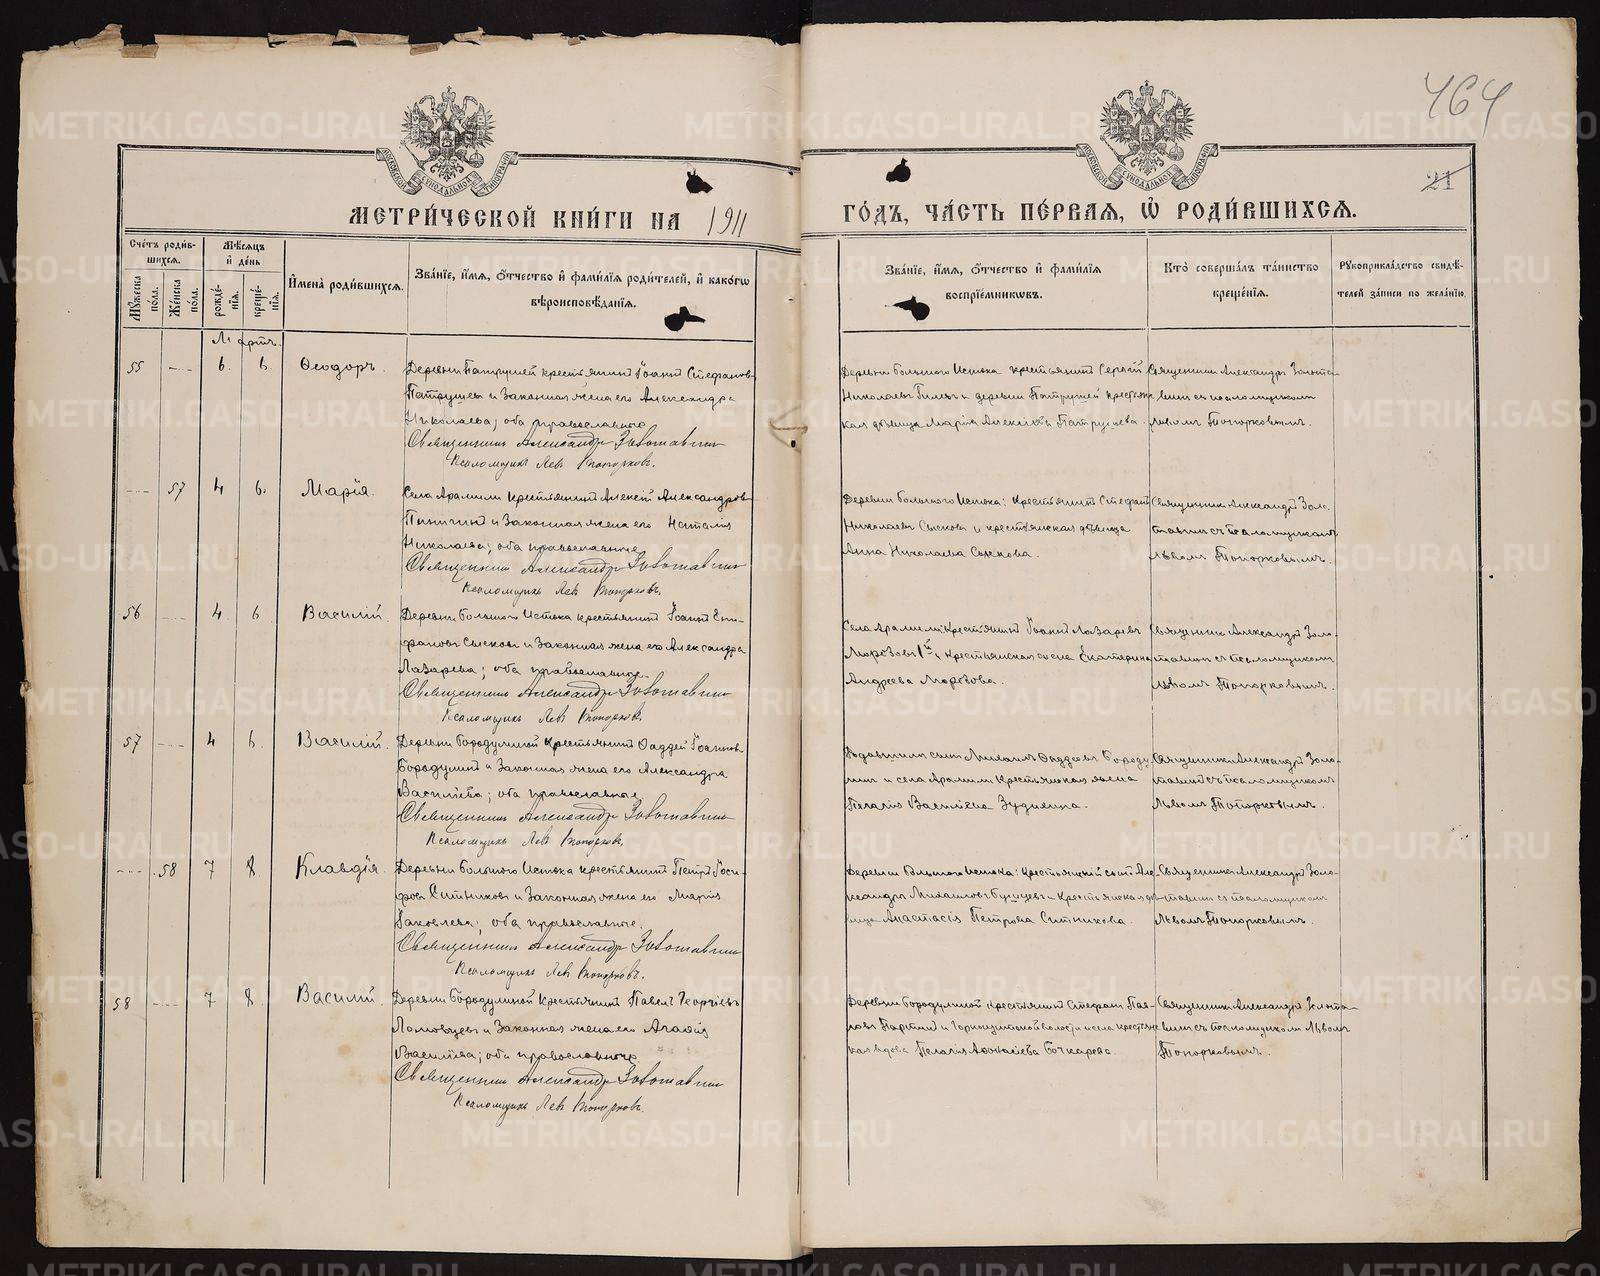 464
21
МОСКОВСКОЙ СѴНОДАЛЬНОЙ ТИПОГРАФІИ
МОСКОВСКОЙ СѴНОДАЛЬНОЙ ТИПОГРАФІИ
МЕТРИ́ЧЕСКОЙ КНИ́ГИ НА 1911 ГО́ДЪ, ЧА́СТЬ ПЕ́РВАЯ, Ѽ РОДИ́ВШИХСЯ.
Сче́тъ роди́в-
шихся.
Му́жеска по́ла.
Же́нска по́ла.
Мѣ́сяцъ
и҆ де́нь
рожде́-
нїѧ.
креще́-
нїѧ.
И҆мена̀ роди́вшихся.
Зва́нїе, и҆́мя, ѻ҆́тчество и҆ фами́лїя роди́телей, и҆ како́гѡ
вѣроисповѣ́данїя.
Зва́нїе, и҆́мя, ѻ҆́тчество и҆ фами́лїя
воспрїе́мникѡвъ.
Кто̀ соверша́лъ та́инство
креще́нїя.
Рукоприкла́дство свидѣ́-
телей за́писи по жела́нїю.
Мартъ.
55 --- 6. 6. Ѳеодоръ.
Деревни Патрушей крестьянинъ Іоаннъ Стефановъ
Патрушевъ и законная жена его Александра
Николаева; оба православные
Священникъ Александръ Золотавинъ
Псаломщикъ Левъ Топорковъ.
Деревни Большого Истока крестьянинъ Сергій
Николаевъ и деревни Патрушей крестьянс
кая дѣвица Марія Алексѣева Патрушева.
Священникъ Александръ Золота-
винъ съ псаломщикомъ
Львомъ Топорковымъ.
--- 57 4 6. Марія.
Села Арамили крестьянинъ Алексій Александровъ
и законная жена его Наталія
Николаева; оба православные
Священникъ Александръ Золотавинъ
Псаломщикъ Левъ Топорковъ.
Деревни Большого Истока: крестьянинъ Стефанъ
Николаевъ Сысковъ и крестьянская дѣвица
Анна Николаева Сыскова.
Священникъ Александръ Золо-
тавинъ съ псаломщикомъ
Львомъ Топорковымъ.
56 --- 4 6 Василій.
Деревни Большого Истока крестьянинъ Іоаннъ Епи-
фановъ Сысковъ и законная жена его Александра
Лазарева; оба православные.
Священникъ Александръ Золотавинъ
Псаломщикъ Левъ Топорковъ.
Села Арамили крестьянинъ Іоаннъ Лазаревъ
Морозовъ 1й и крестьянская жена Екатерина
Андреева Морозова.
Священникъ Александръ Золо-
тавинъ съ псаломщикомъ
Львомъ Топорковымъ.
57 --- 4 6 Василій.
Деревни Бородулиной крестьянинъ Ѳаддей Іоанновъ
Бородулинъ и законная жена его Александра
Василіева; оба православные
Священникъ Александръ Золотавинъ
Псаломщикъ Левъ Топорковъ.
сынъ Михаилъ Ѳаддеевъ Бороду
линъ и села Арамили крестьянская жена
Пелагія Василіева
Священникъ Александръ Золо-
тавинъ съ псаломщикомъ
Львомъ Топорковымъ.
--- 58 7 8 Клавдія.
Деревни Большого Истока крестьянинъ Петръ Іоси-
фовъ Ситниковъ и законная жена его Марія
Іаковлева; оба православные.
Священникъ Александръ Золотавинъ
Псаломщикъ Левъ Топорковъ.
Деревни Большого Истока: крестьянскій сынъ Але-
ксандръ Михаиловъ и крестьянская дѣ
вица Анастасія Петрова Ситникова.
Священникъ Александръ Золо-
тавинъ съ псаломщикомъ
Львомъ Топорковымъ.
58 --- 7 8 Василій.
Деревни Бородулиной крестьянинъ Павелъ Георгіевъ
и законная жена его Агафія
Василіева; оба православные
Священникъ Александръ Золотавинъ
Псаломщикъ Левъ Топорковъ.
Деревни Бородулиной крестьянинъ Стефанъ Пав-
ловъ и волости села крестьянс
кая вдова Пелагія Аѳанасіева Бочкарева.
Священникъ Александръ Золота-
винъ съ псаломщикомъ Львомъ
Топорковымъ.
METRIKI.GASO-URAL.RU